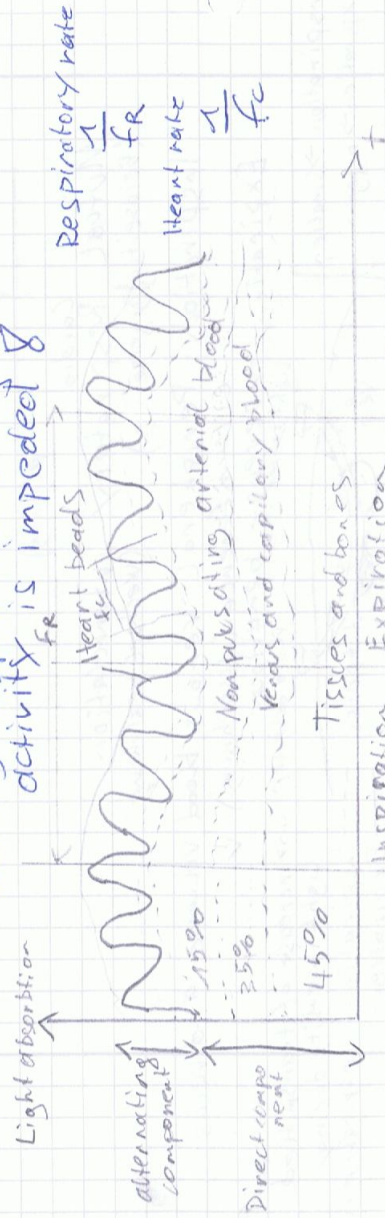 activity is impeded 8
Respiratory rate
1
fR
Heart rate
1
fc
Light absorbtion
fR
Heart beads
fc
alternating
component
Direct compo
nent
15%
35%
45%
Nonpulsating arterial blood
Venous and capilary blood
Tissues and bones
t
Inspiration Expiration